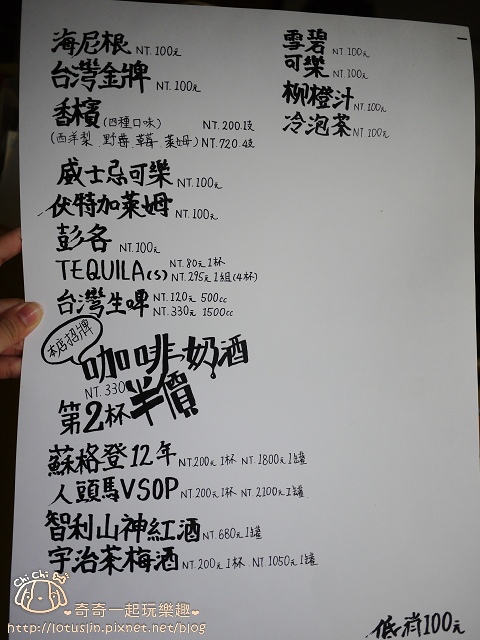 海尼根 NT.100元
台灣金牌 NT.100元
香檳(四種口味) NT.200.1支
(西洋梨.野莓.草莓.萊姆) NT.720.4支
威士忌可樂 NT.100元
伏特加萊姆 NT.100元
彭各 NT.100元
TEQUILA(s) NT.80元1杯
NT.295元1組(4杯)
台灣生啤 NT.120元 500cc
NT.330元 1500cc
本店招牌
咖啡奶酒
NT.330
第2杯半價
蘇格登12年 NT.200元1杯 NT.1800元1罐
人頭馬VSOP NT.200元1杯 NT.2100元1罐
智利山神紅酒 NT 680元1罐
宇治茶梅酒 NT.200元1杯 NT.1050元1罐
雪碧 NT.100元
可樂 NT.100元
柳橙汁 NT.100元
冷泡茶 NT.100元
低消100元
Chi Chi
奇奇一起玩樂趣
http://lotuslin.pixnet.net/blog